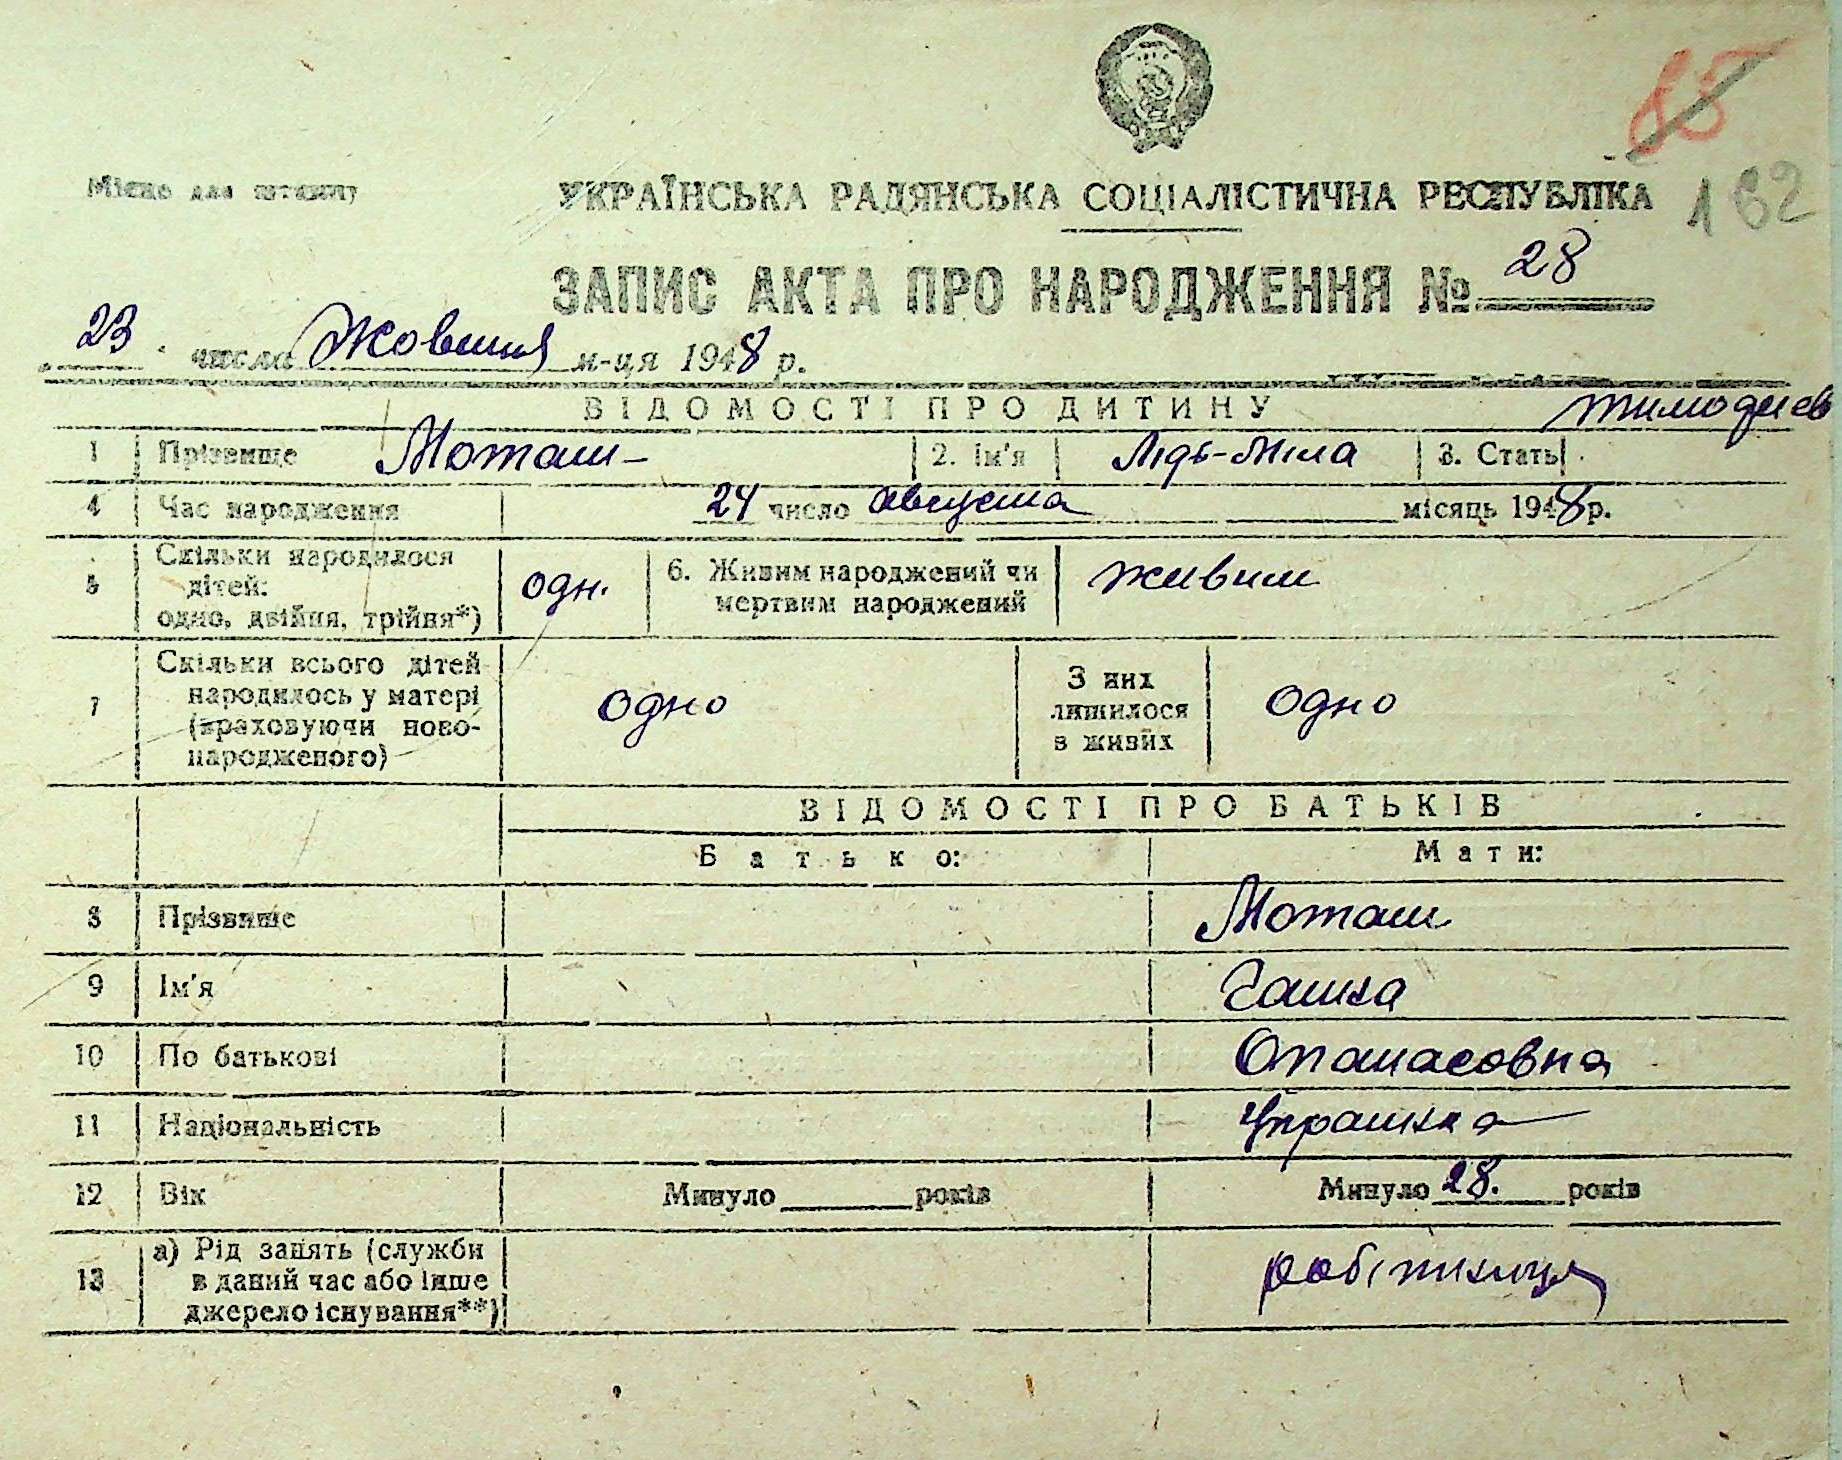 85
Місце для штампу
УКРАЇНСЬКА РАДЯНСЬКА СОЦІАЛІСТИЧНА РЕСПУБЛІКА
162
ЗАПИС АКТА ПРО НАРОДЖЕННЯ № 28
23 числа Жовтня м-ця 1948 р.
ВІДОМОСТІ ПРО ДИТИНУ
1 Прізвище Моташ 2. Ім'я Людь-Мила 3. Стать
4 Час народження 24 число августа місяць 1948 р.
5 Скільки народилося дітей: одно, двійня, трійня*) одн. 6. Живим народжений чи мертвим народжений живим
7 Скільки всього дітей народилось у матері (враховуючи новонародженого) одно З них лишилося в живих одно
ВІДОМОСТІ ПРО БАТЬКІВ
Батько: Мати:
8 Прізвище Моташ
9 Ім'я Ганна
10 По батькові Опанасовна
11 Національність Українка
12 Вік Минуло років Минуло 28. років
13 а) Рід занять (служби в даний час або інше джерело існування**) робітниця